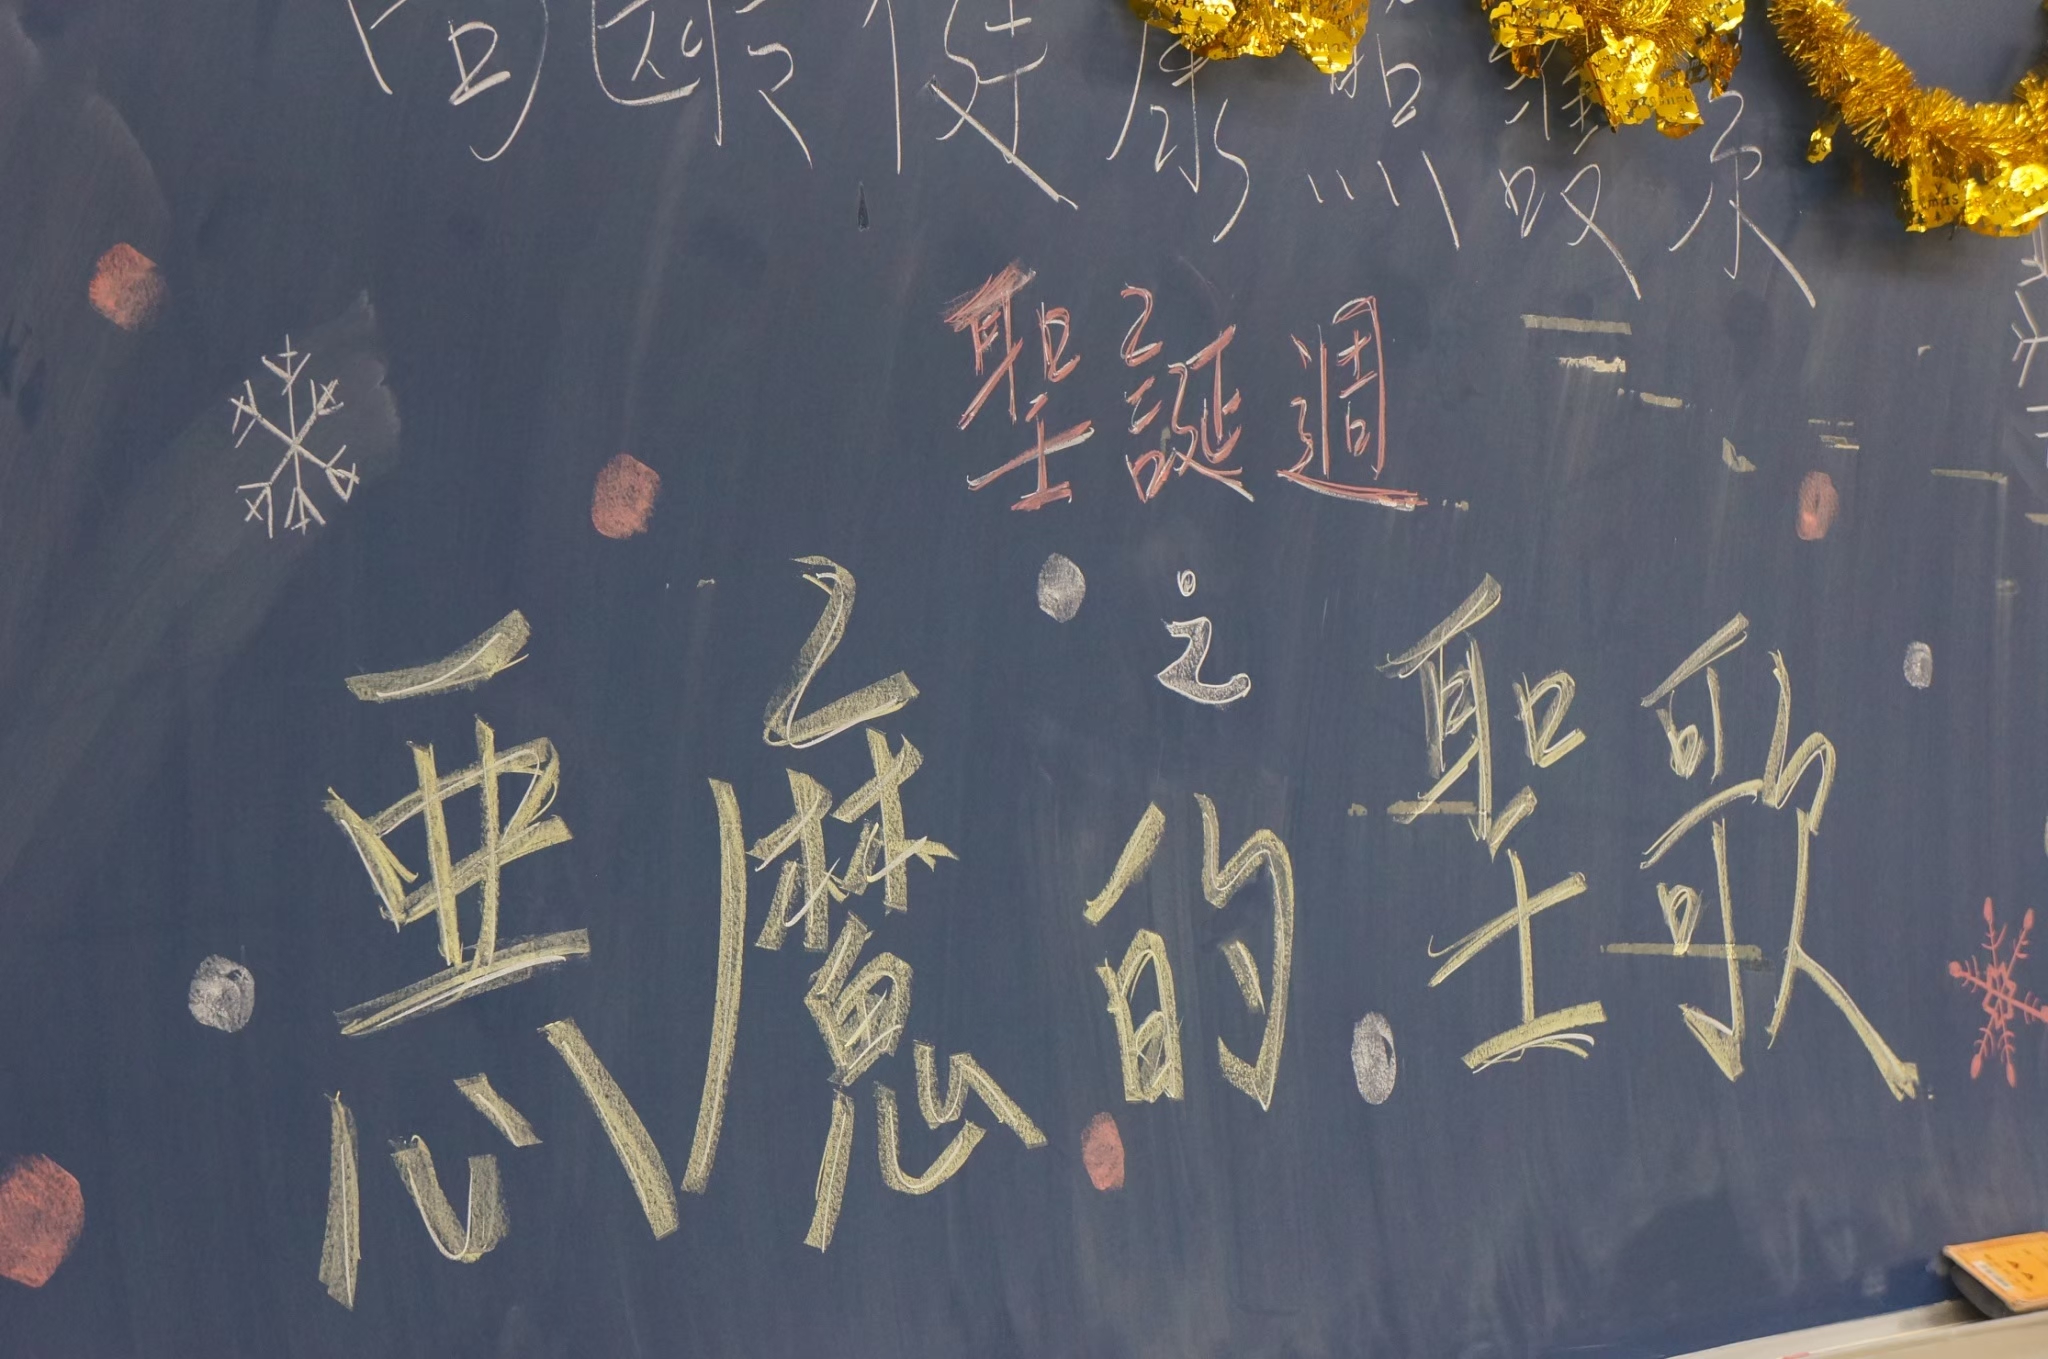 口腔健康照護系
聖誕週
之
惡魔的聖歌